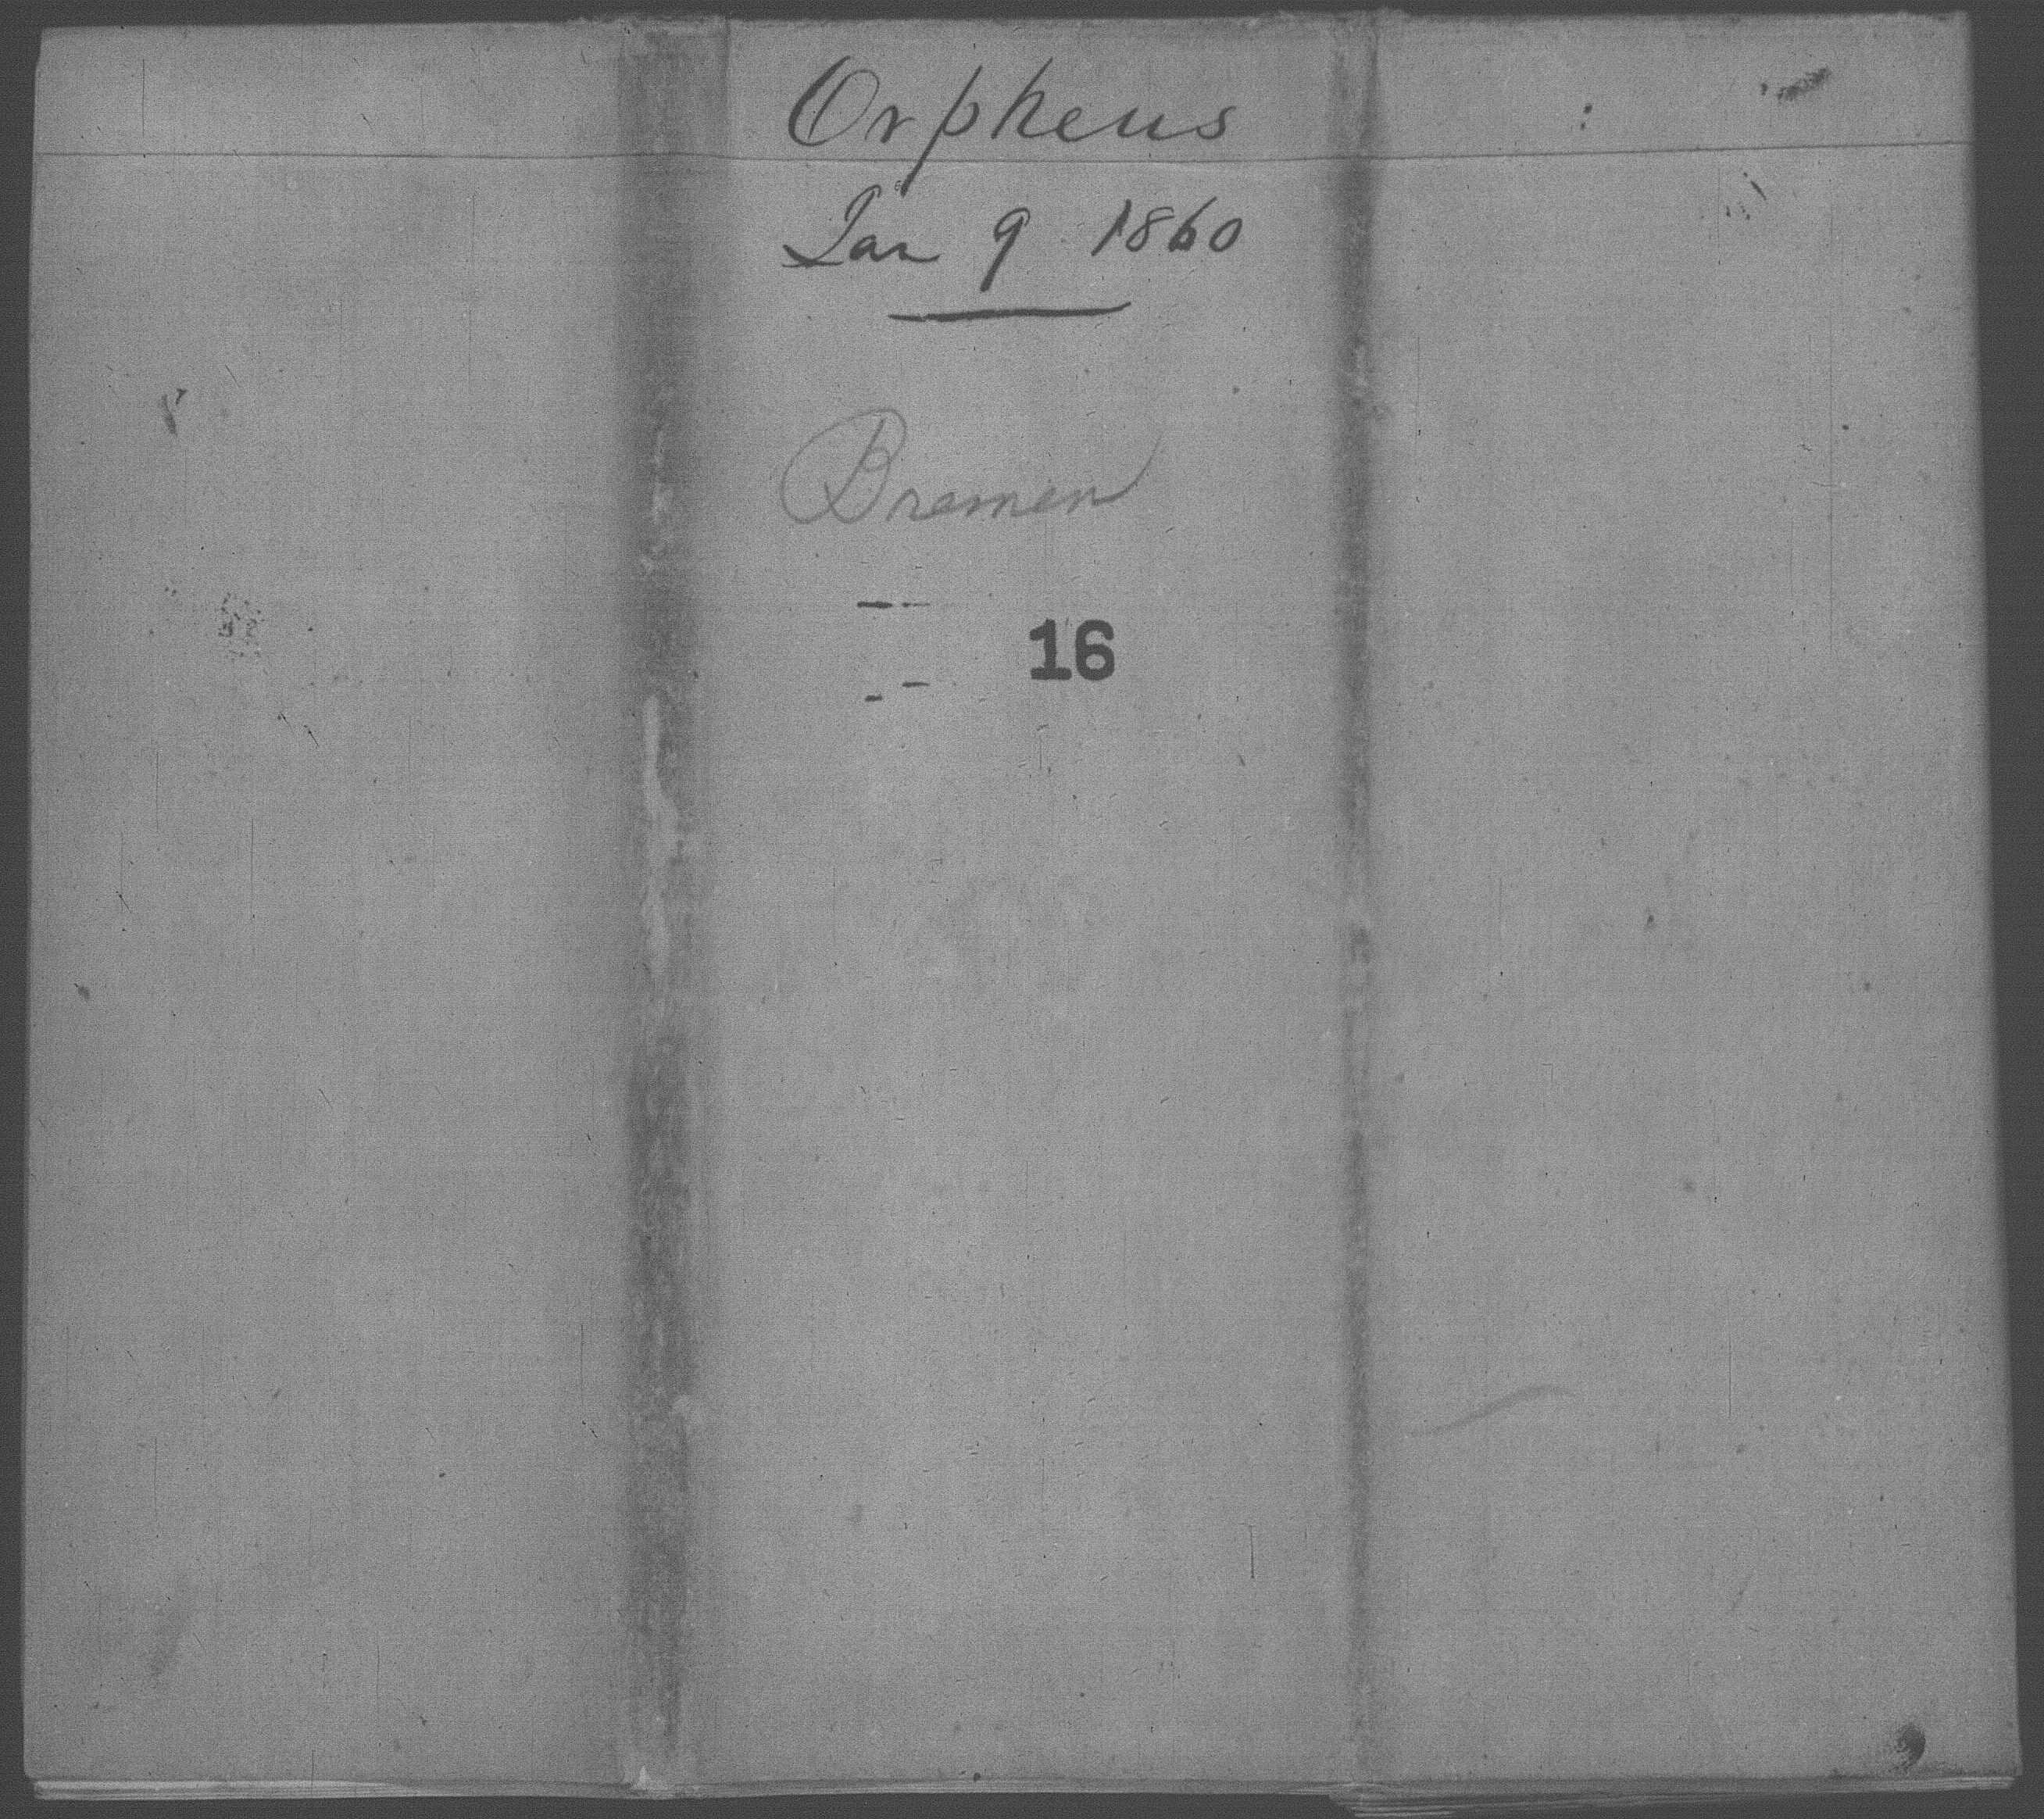 Orpheus
Jan 9 1860
Bremen
16